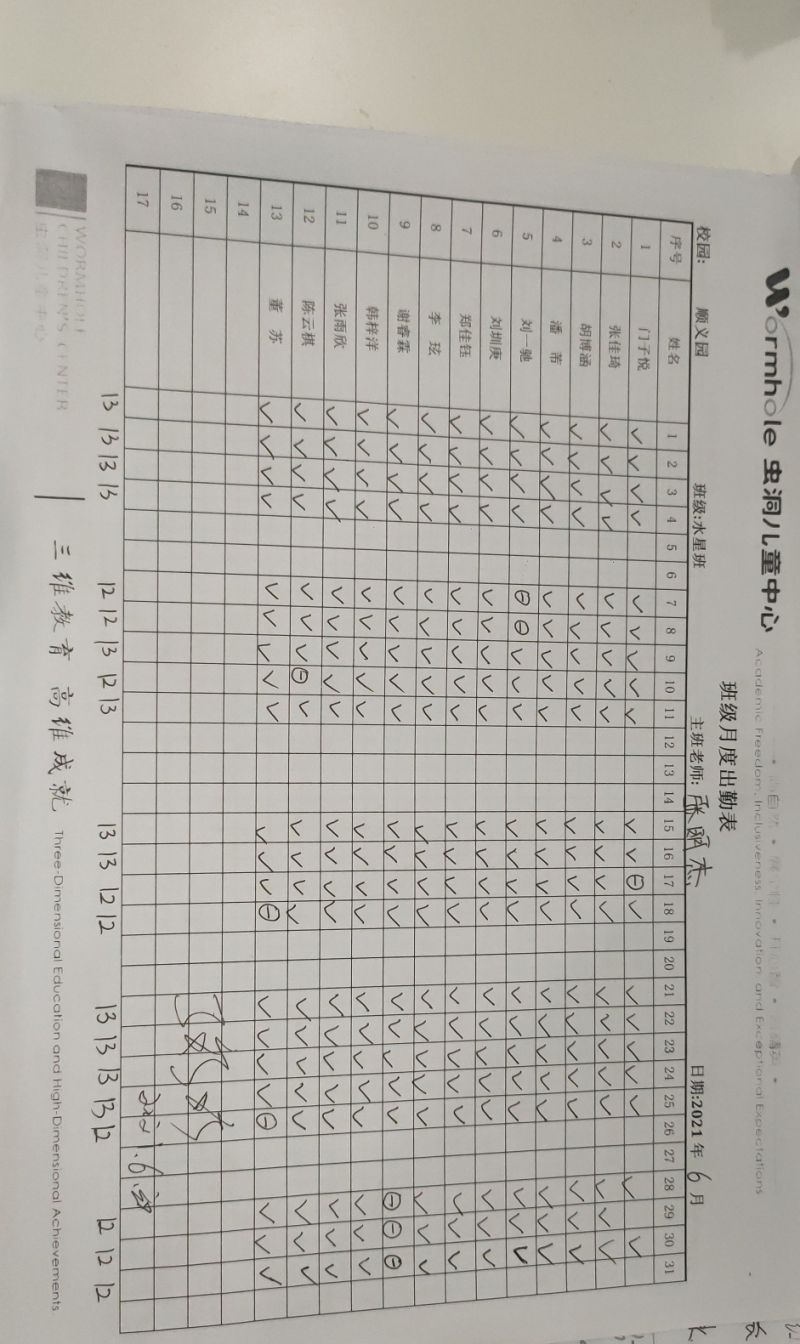 Wormhole 虫洞儿童中心
Academic Freedom, Inclusiveness, Innovation, and Exceptional Expectations
班级月度出勤表
校园: 顺义园 班级:水星班 主班老师: 日期:2021 年 6 月
序号 姓名 1 2 3 4 5 6 7 8 9 10 11 12 13 14 15 16 17 18 19 20 21 22 23 24 25 26 27 28 29 30 31
1 门子悦 ✓ ✓ ✓ ✓ ✓ ✓ ✓ ✓ ✓ ✓ ✓ ⊖ ✓ ✓ ✓ ✓ ✓ ✓ ✓ ✓
2 张佳琦 ✓ ✓ ✓ ✓ ✓ ✓ ✓ ✓ ✓ ✓ ✓ ✓ ✓ ✓ ✓ ✓ ✓ ✓ ✓ ✓ ✓
3 胡博涵 ✓ ✓ ✓ ✓ ✓ ✓ ✓ ✓ ✓ ✓ ✓ ✓ ✓ ✓ ✓ ✓ ✓ ✓ ✓ ✓ ✓
4 潘芾 ✓ ✓ ✓ ✓ ✓ ✓ ✓ ✓ ✓ ✓ ✓ ✓ ✓ ✓ ✓ ✓ ✓ ✓ ✓ ✓ ✓
5 刘一驰 ✓ ✓ ✓ ✓ ⊖ ⊖ ✓ ✓ ✓ ✓ ✓ ✓ ✓ ✓ ✓ ✓ ✓ ✓ ✓ ✓ ✓
6 刘圳庚 ✓ ✓ ✓ ✓ ✓ ✓ ✓ ✓ ✓ ✓ ✓ ✓ ✓ ✓ ✓ ✓ ✓ ✓ ✓ ✓ ✓
7 郑佳钰 ✓ ✓ ✓ ✓ ✓ ✓ ✓ ✓ ✓ ✓ ✓ ✓ ✓ ✓ ✓ ✓ ✓ ✓ ✓ ✓ ✓
8 李玹 ✓ ✓ ✓ ✓ ✓ ✓ ✓ ✓ ✓ ✓ ✓ ✓ ✓ ✓ ✓ ✓ ✓ ✓ ✓ ✓ ✓
9 谢睿霖 ✓ ✓ ✓ ✓ ✓ ✓ ✓ ✓ ✓ ✓ ✓ ✓ ✓ ✓ ✓ ✓ ✓ ✓ ⊖ ⊖ ⊖
10 韩梓洋 ✓ ✓ ✓ ✓ ✓ ✓ ✓ ✓ ✓ ✓ ✓ ✓ ✓ ✓ ✓ ✓ ✓ ✓ ✓ ✓ ✓
11 张雨欣 ✓ ✓ ✓ ✓ ✓ ✓ ✓ ✓ ✓ ✓ ✓ ✓ ✓ ✓ ✓ ✓ ✓ ✓ ✓ ✓ ✓
12 陈云棋 ✓ ✓ ✓ ✓ ✓ ✓ ✓ ⊖ ✓ ✓ ✓ ✓ ✓ ✓ ✓ ✓ ✓ ✓ ✓ ✓ ✓
13 董苏 ✓ ✓ ✓ ✓ ✓ ✓ ✓ ✓ ✓ ✓ ✓ ✓ ⊖ ✓ ✓ ✓ ✓ ⊖ ✓ ✓ ✓
14
15
16
17
13 13 13 13 12 12 13 12 13 13 13 12 12 13 13 13 13 12 12 12 12
WORMHOLE
CHILDREN'S CENTER
虫洞儿童中心
三维教育 高维成就 Three-Dimensional Education and High-Dimensional Achievements